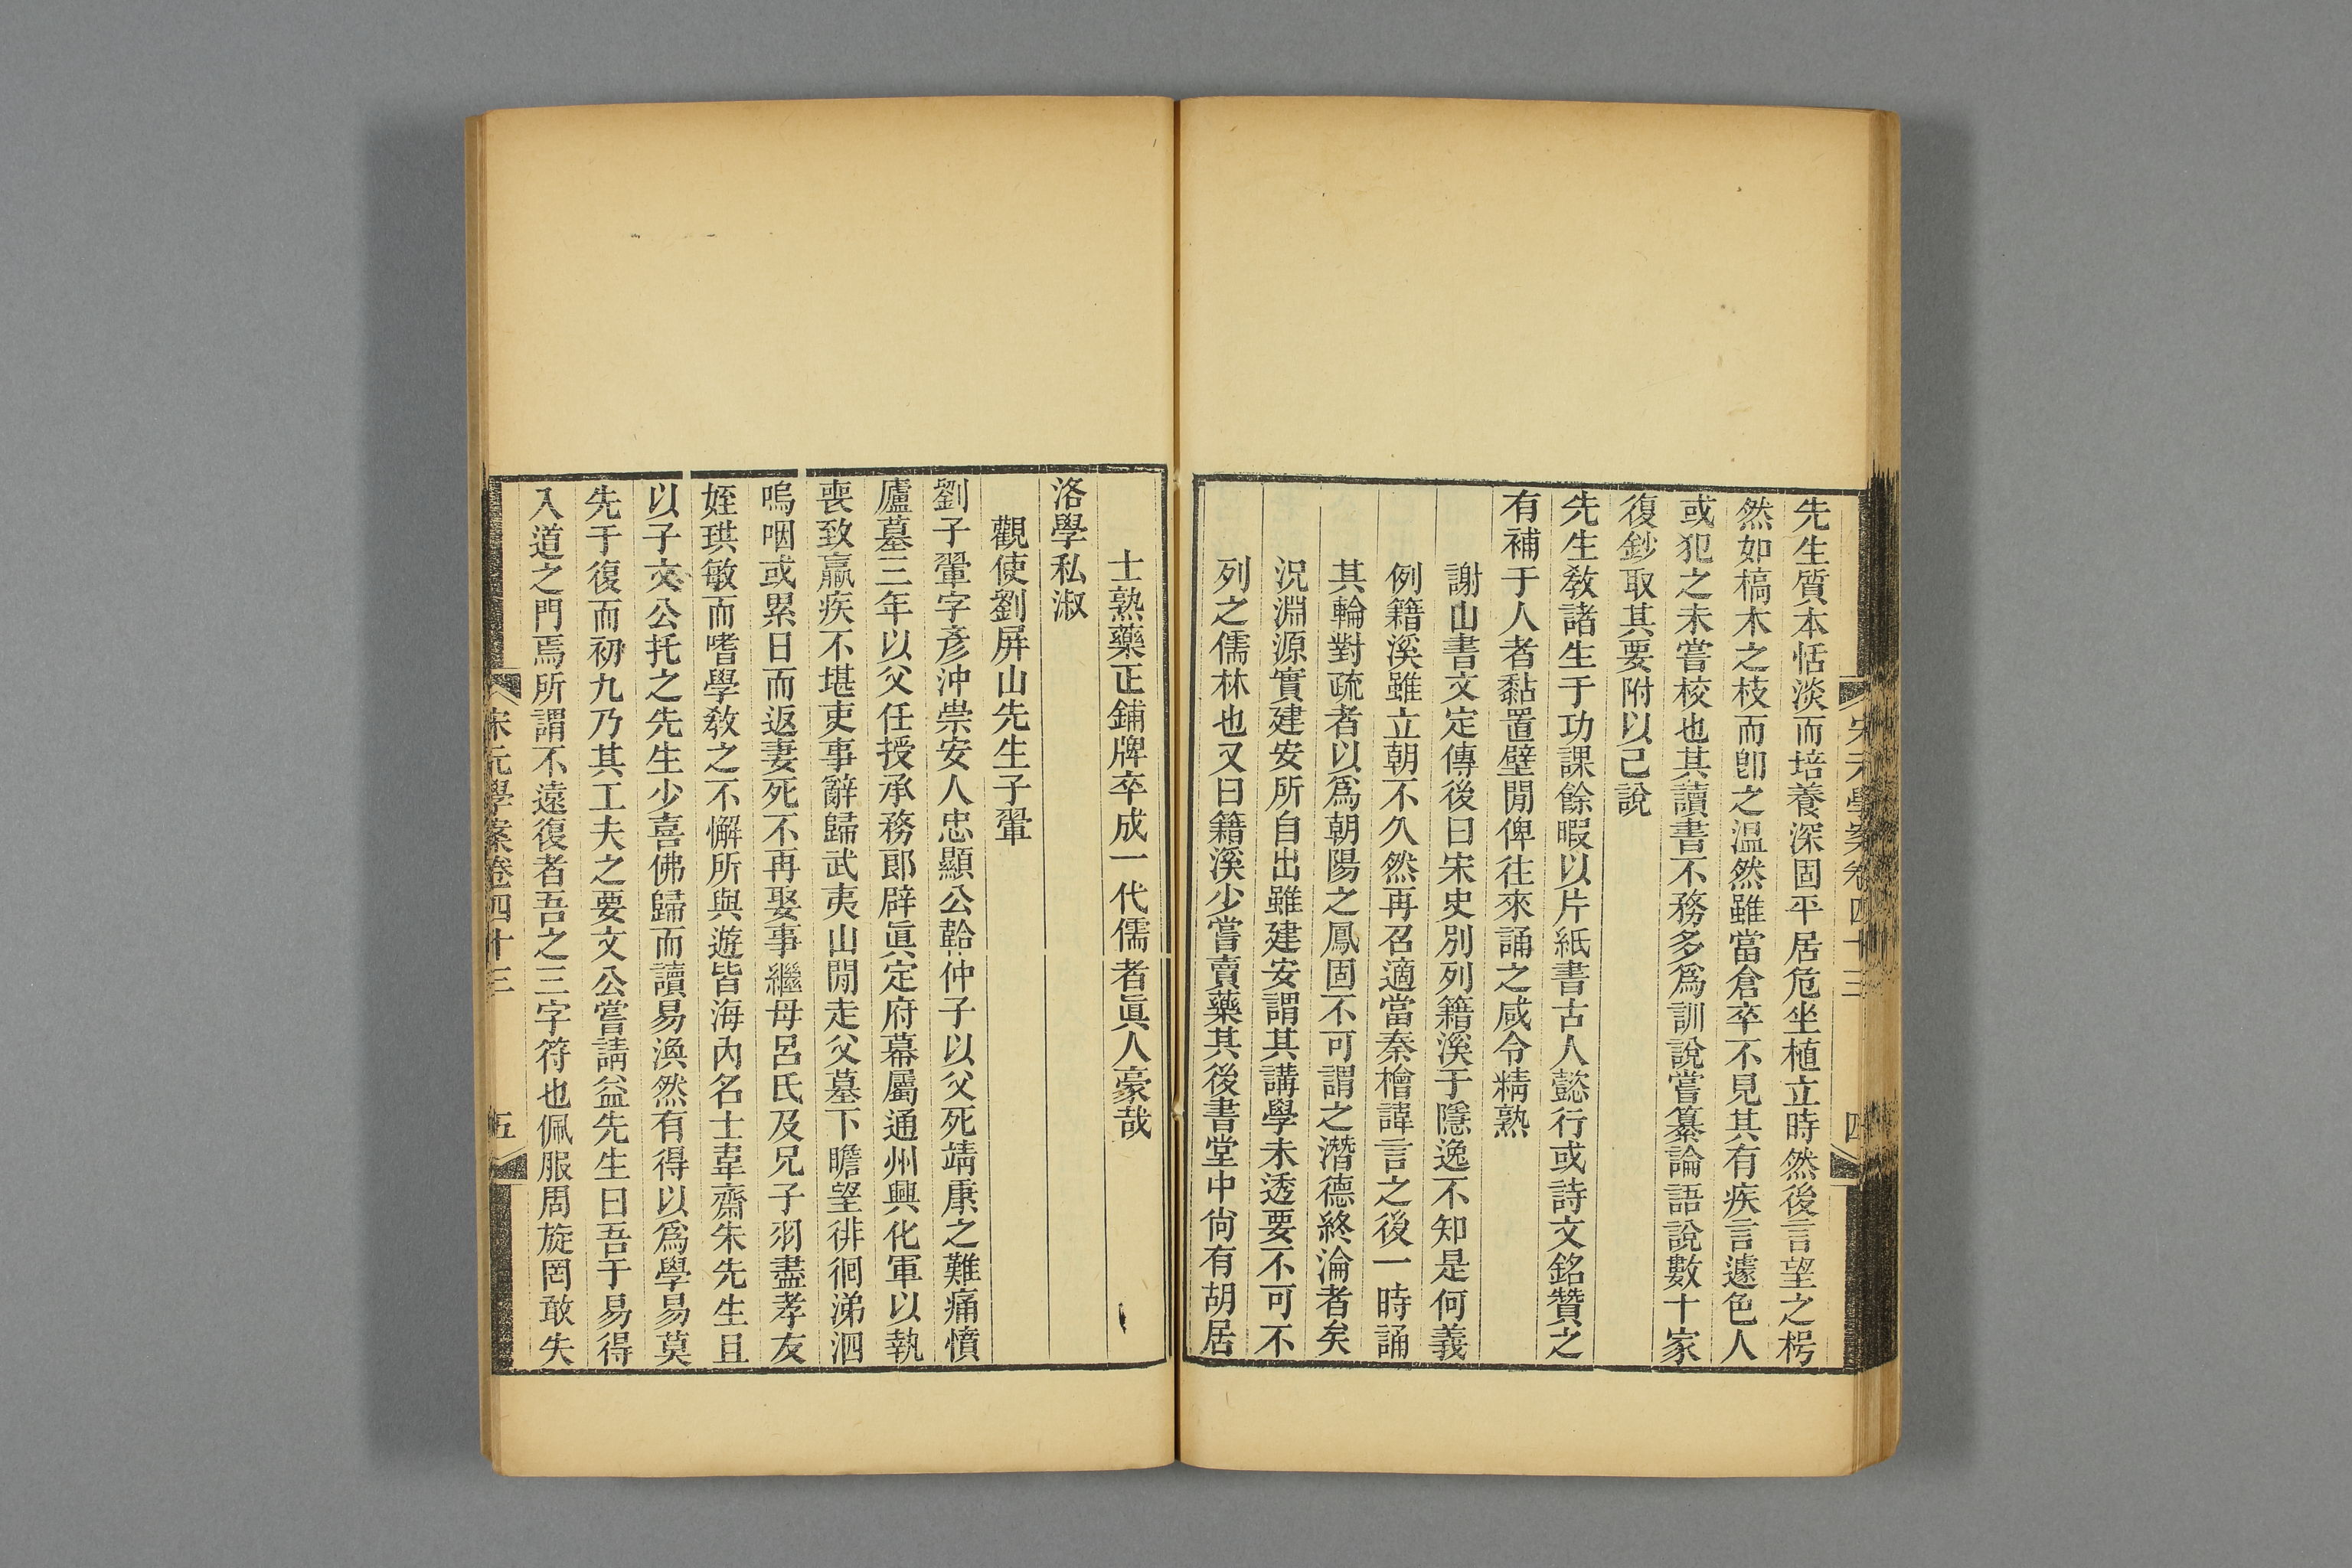 宋元學案卷四十三
四
先生質本恬淡而培養深固平居危坐植立時然後言望之枵
然如槁木之枝而卽之温然雖當倉卒不見其有疾言遽色人
或犯之未嘗校也其讀書不務多爲訓說嘗纂論語說數十家
復鈔取其要附以己說
先生敎諸生于功課餘暇以片紙書古人懿行或詩文銘贊之
有補于人者黏置壁閒俾往來誦之咸令精熟
謝山書文定傳後曰宋史別列籍溪于隱逸不知是何義
例籍溪雖立朝不久然再召適當秦檜諱言之後一時誦
其輪對疏者以爲朝陽之鳳固不可謂之潛德終淪者矣
況淵源實建安所自出雖建安謂其講學未透要不可不
列之儒林也又曰籍溪少嘗賣藥其後書堂中尙有胡居
士熟藥正鋪牌卒成一代儒者眞人豪哉
洛學私淑
觀使劉屏山先生子翬
劉子翬字彥沖崇安人忠顯公韐仲子以父死靖康之難痛憤
廬墓三年以父任授承務郎辟眞定府幕屬通州興化軍以執
喪致羸疾不堪吏事辭歸武夷山閒走父墓下瞻望徘徊涕泗
嗚咽或累日而返妻死不再娶事繼母呂氏及兄子羽盡孝友
姪珙敏而嗜學敎之不懈所與遊皆海內名士韋齋朱先生且
以子文公托之先生少喜佛歸而讀易渙然有得以爲學易莫
先于復而初九乃其工夫之要文公嘗請益先生曰吾于易得
入道之門焉所謂不遠復者吾之三字符也佩服周旋罔敢失
宋元學案卷四十三
五